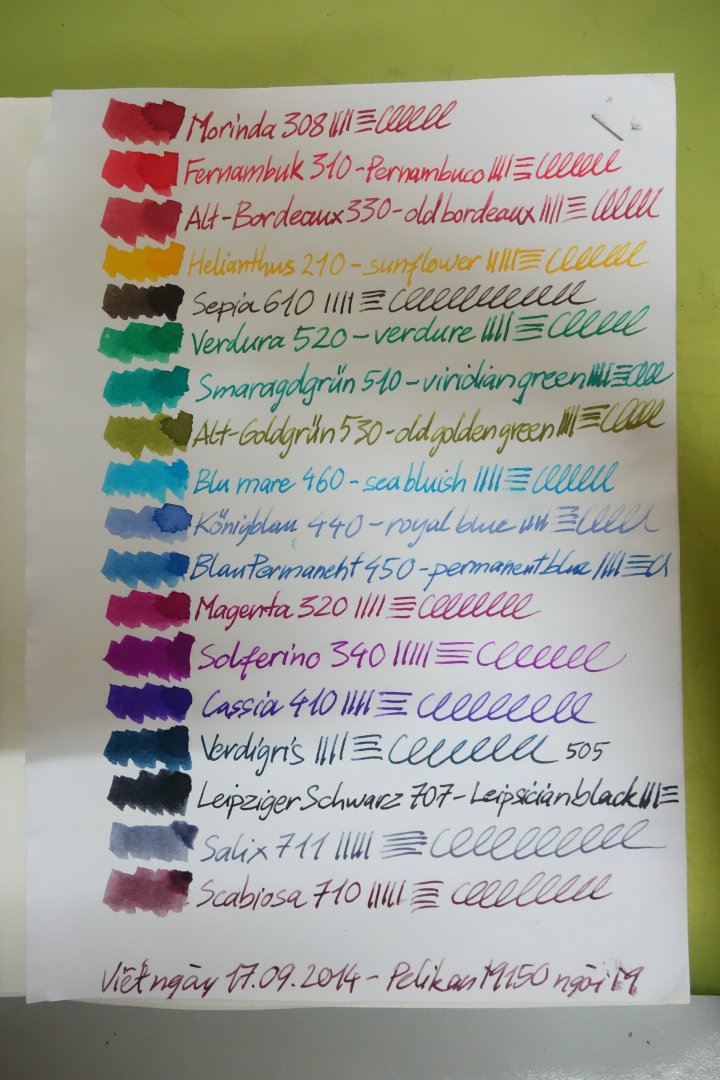 Morinda 308
Fernambuk 310 - Pernambuco
Alt-Bordeaux 330 - old bordeaux
Helianthus 210 - sunflower
Sepia 610
Verdura 520 - verdure
Smaragdgrün 510 - viridian green
Alt-Goldgrün 530 - old golden green
Blu mare 460 - sea bluish
Königblau 440 - royal blue
Blau Permanent 450 - permanent blue
Magenta 320
Solferino 340
Cassia 410
Verdigris 505
Leipziger Schwarz 707 - Leipsician black
Salix 711
Scabiosa 710
Viết ngày 17.09.2014 - Pelikan M150 ngòi M